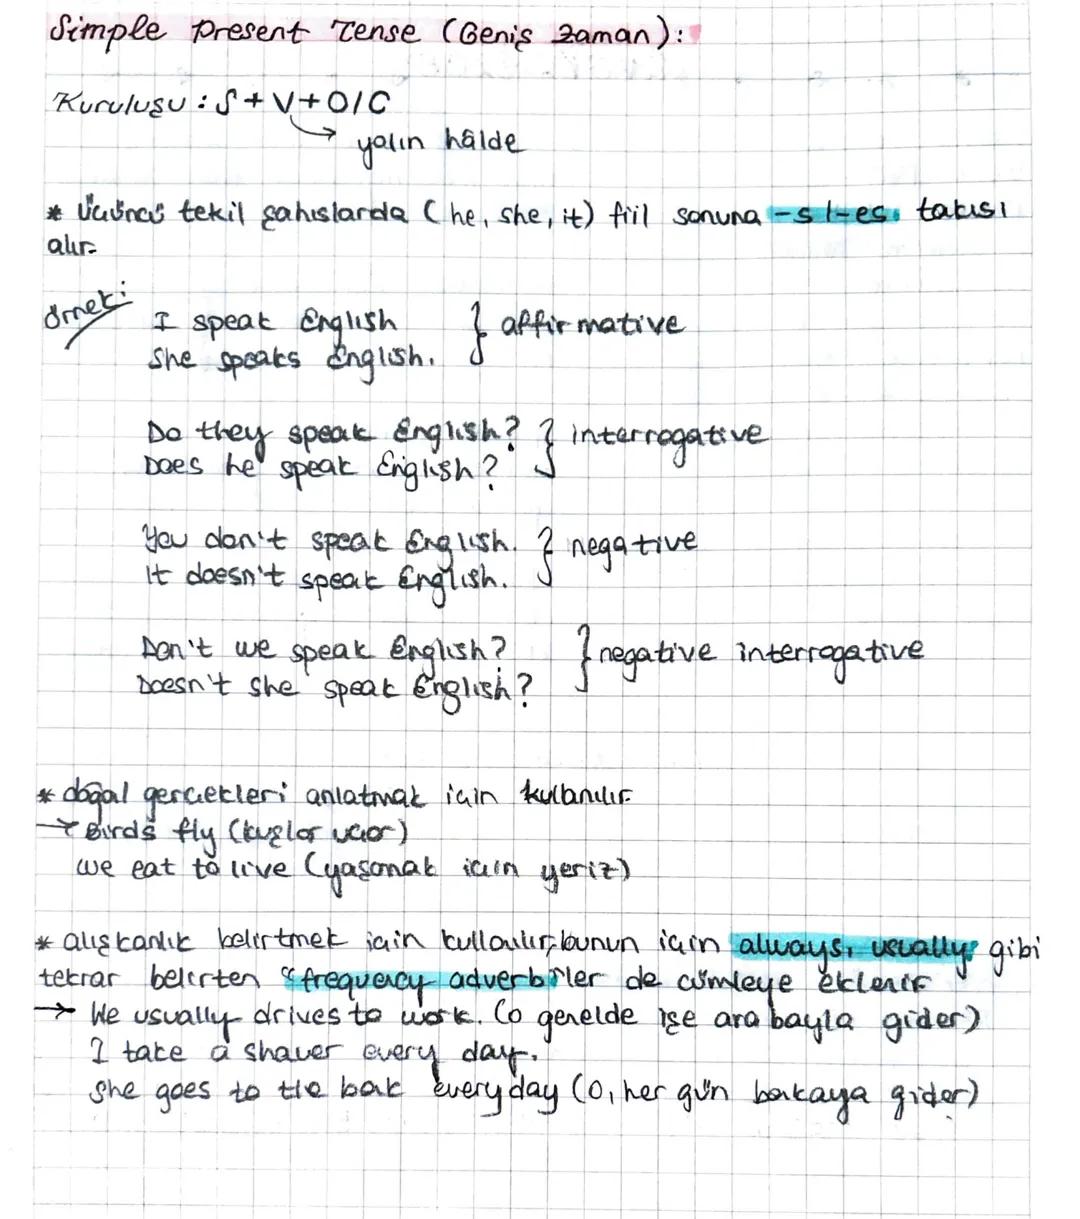 Simple Present Tense (Geniş Zaman):
Kuruluşu : S + V + O/C
yalın hâlde
* Üçüncü tekil şahıslarda (he, she, it) fiil sonuna -s/-es takısı
alır.
örnek:
I speak English
She speaks English.
} affirmative
Do they speak English?
Does he speak English?
} interrogative
You don't speak English.
It doesn't speak English.
} negative
Don't we speak English?
Doesn't she speak English?
} negative interrogative
* doğal gerçekleri anlatmak için kullanılır.
→ Birds fly (kuşlar uçar)
we eat to live (yaşamak için yeriz)
* alışkanlık belirtmek için kullanılır, bunun için always, usually gibi
tekrar belirten "frequency adverb"ler de cümleye eklenir
→ He usually drives to work. (o genelde işe arabayla gider)
I take a shower every day.
She goes to the bak everyday (O, her gün bankaya gider)